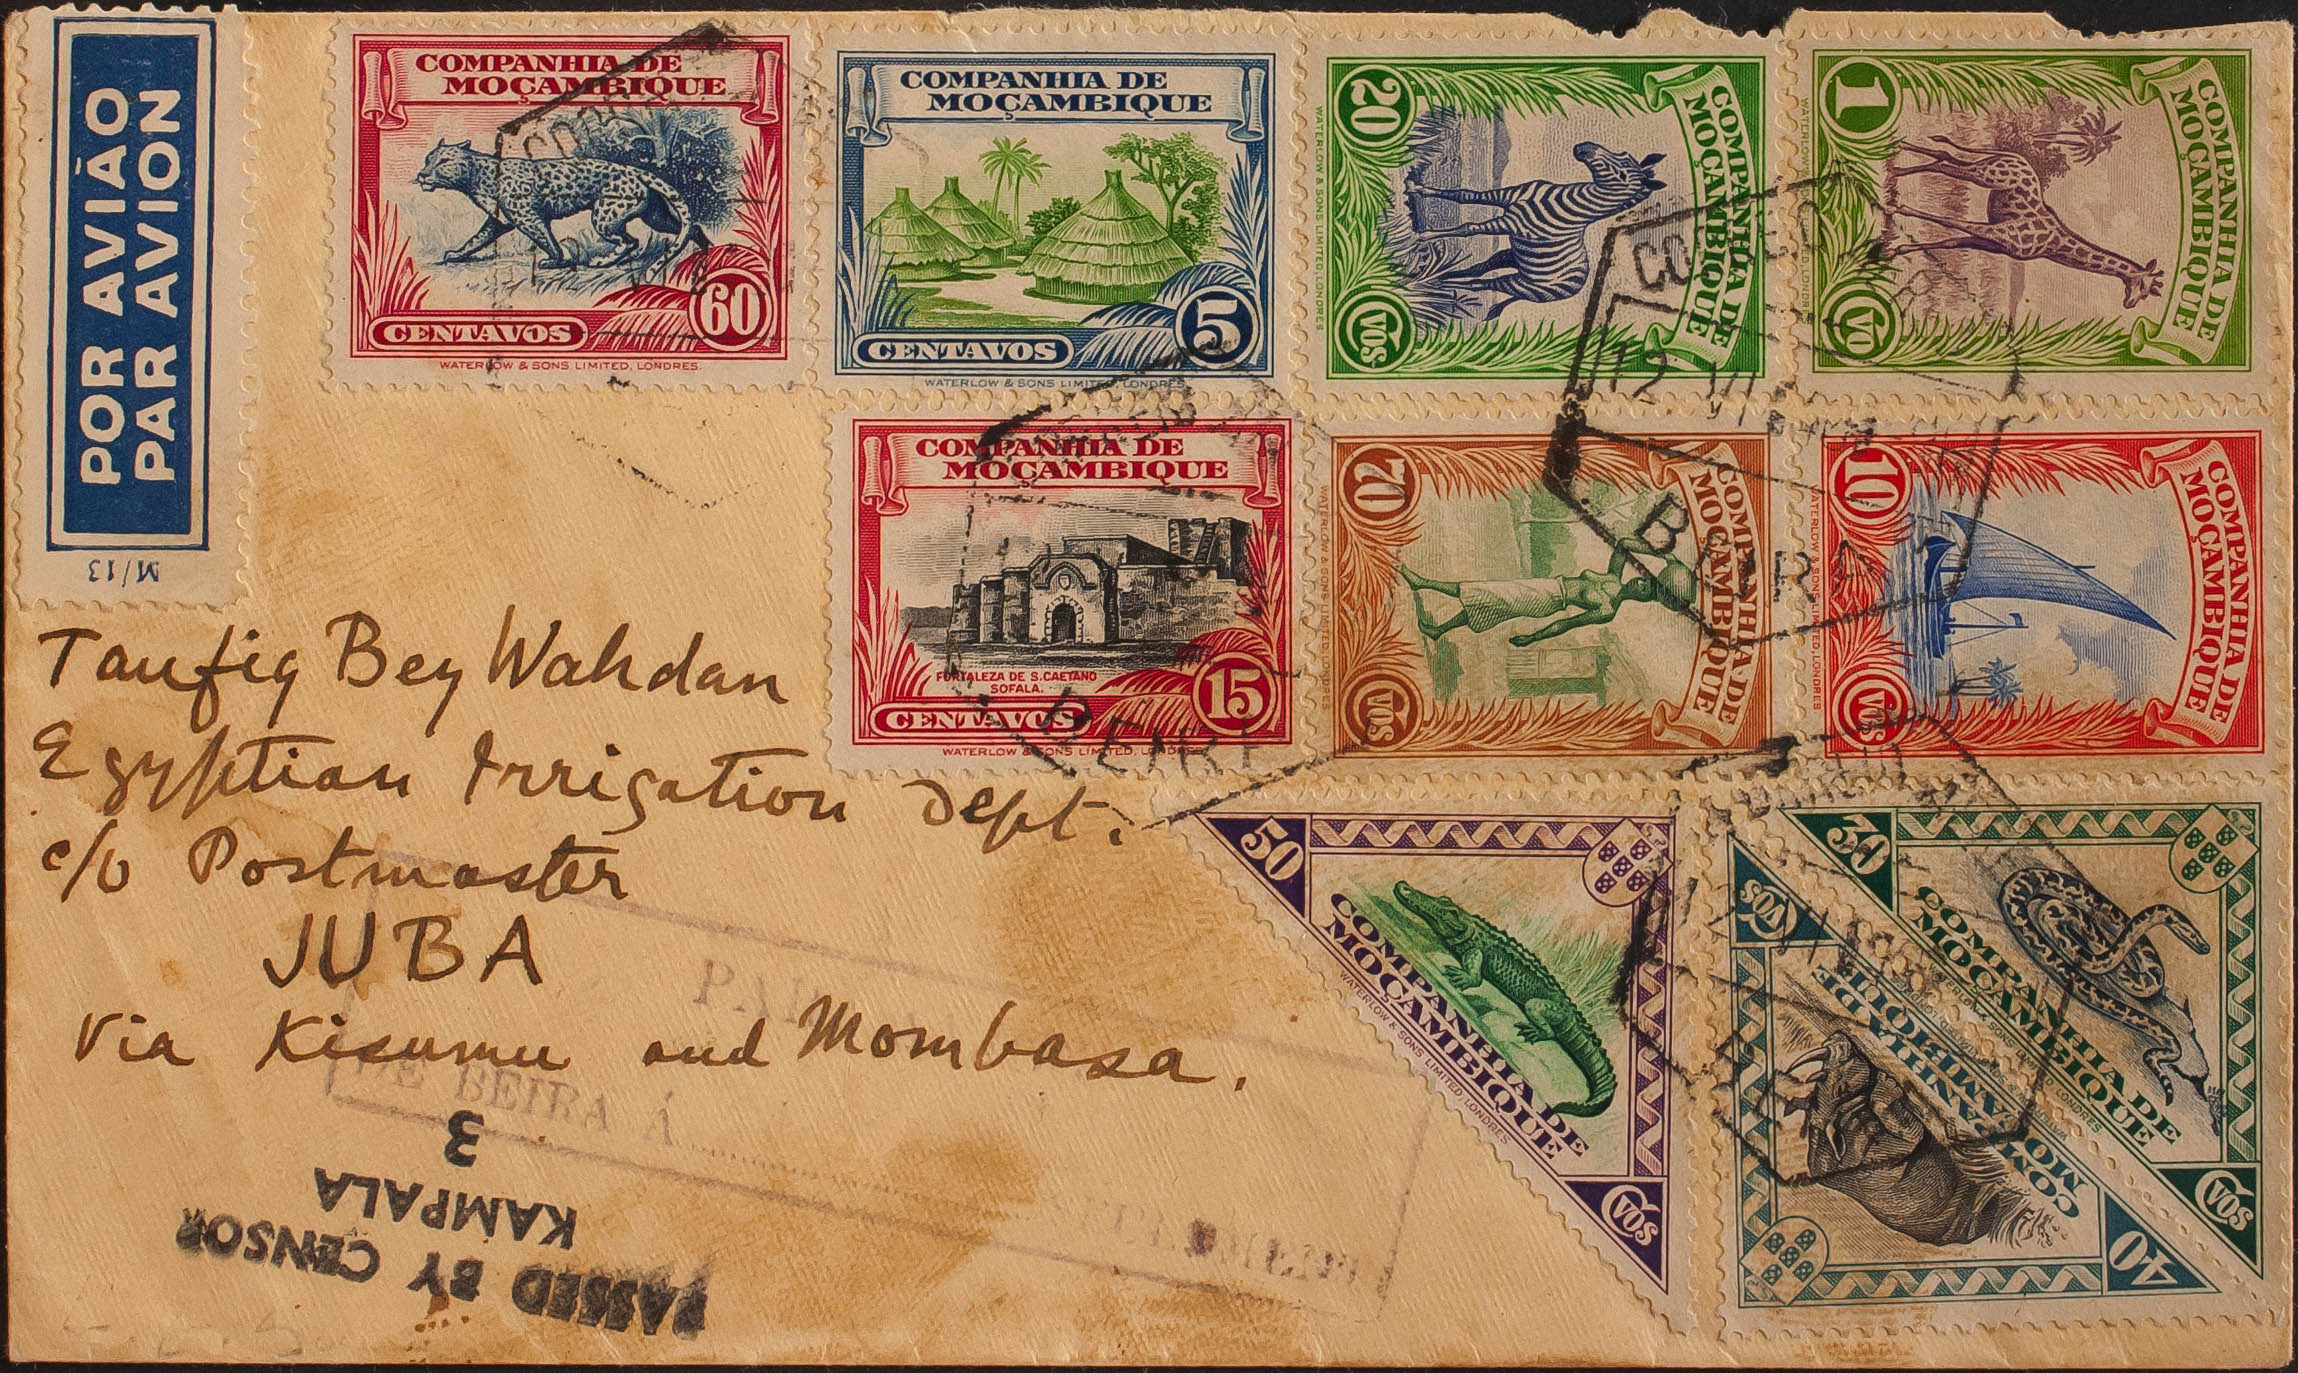 POR AVIÃO
PAR AVION
M/13
COMPANHIA DE
MOÇAMBIQUE
CENTAVOS
60
WATERLOW & SONS LIMITED, LONDRES.
COMPANHIA DE
MOÇAMBIQUE
CENTAVOS
5
WATERLOW & SONS LIMITED, LONDRES.
COMPANHIA DE
MOÇAMBIQUE
20
CVOS
WATERLOW & SONS LIMITED, LONDRES
COMPANHIA DE
MOÇAMBIQUE
1
CVO
WATERLOW
LONDRES
CORREO
12 VI
BEIRA
COMPANHIA DE
MOÇAMBIQUE
FORTALEZA DE S. CAETANO
SOFALA.
CENTAVOS
15
WATERLOW & SONS LIMITED, LONDRES
BEIRA
COMPANHIA DE
MOÇAMBIQUE
70
CVOS
WATERLOW & SONS LIMITED, LONDRES
COMPANHIA DE
MOÇAMBIQUE
10
CVOS
WATERLOW & SONS LIMITED, LONDRES
Taufiq Bey Wahdan
Egyptian Irrigation Dept.
c/o Postmaster
JUBA
Via Kisumu and Mombasa.
50
COMPANHIA DE
MOÇAMBIQUE
WATERLOW & SONS LIMITED, LONDRES
CVOS
30
COMPANHIA DE
MOÇAMBIQUE
WATERLOW & SONS LIMITED, LONDRES
CVOS
40
COMPANHIA DE
MOÇAMBIQUE
CVOS
DE BEIRA À
PASSED BY CENSOR
KAMPALA
3